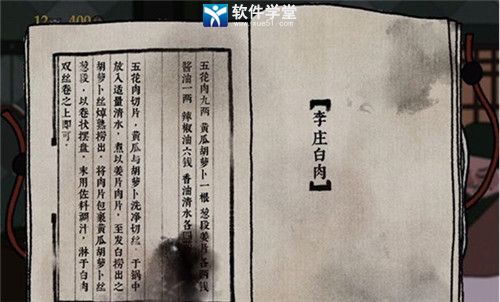 12
400
软件学堂
www.fxue51.com
【李庄白肉】
五花肉九两 黄瓜胡萝卜一根 葱段姜片各两钱
酱油一两 辣椒油六钱 香油清水各四
五花肉切片,黄瓜与胡萝卜洗净切丝。于锅中
放入适量清水,煮以姜片肉片,至发白捞出之
胡萝卜丝焯熟捞出,将肉片包裹黄瓜胡萝卜丝
葱段,以卷状摆盘,末用佐料调汁,淋于白肉
双丝卷之上即可。